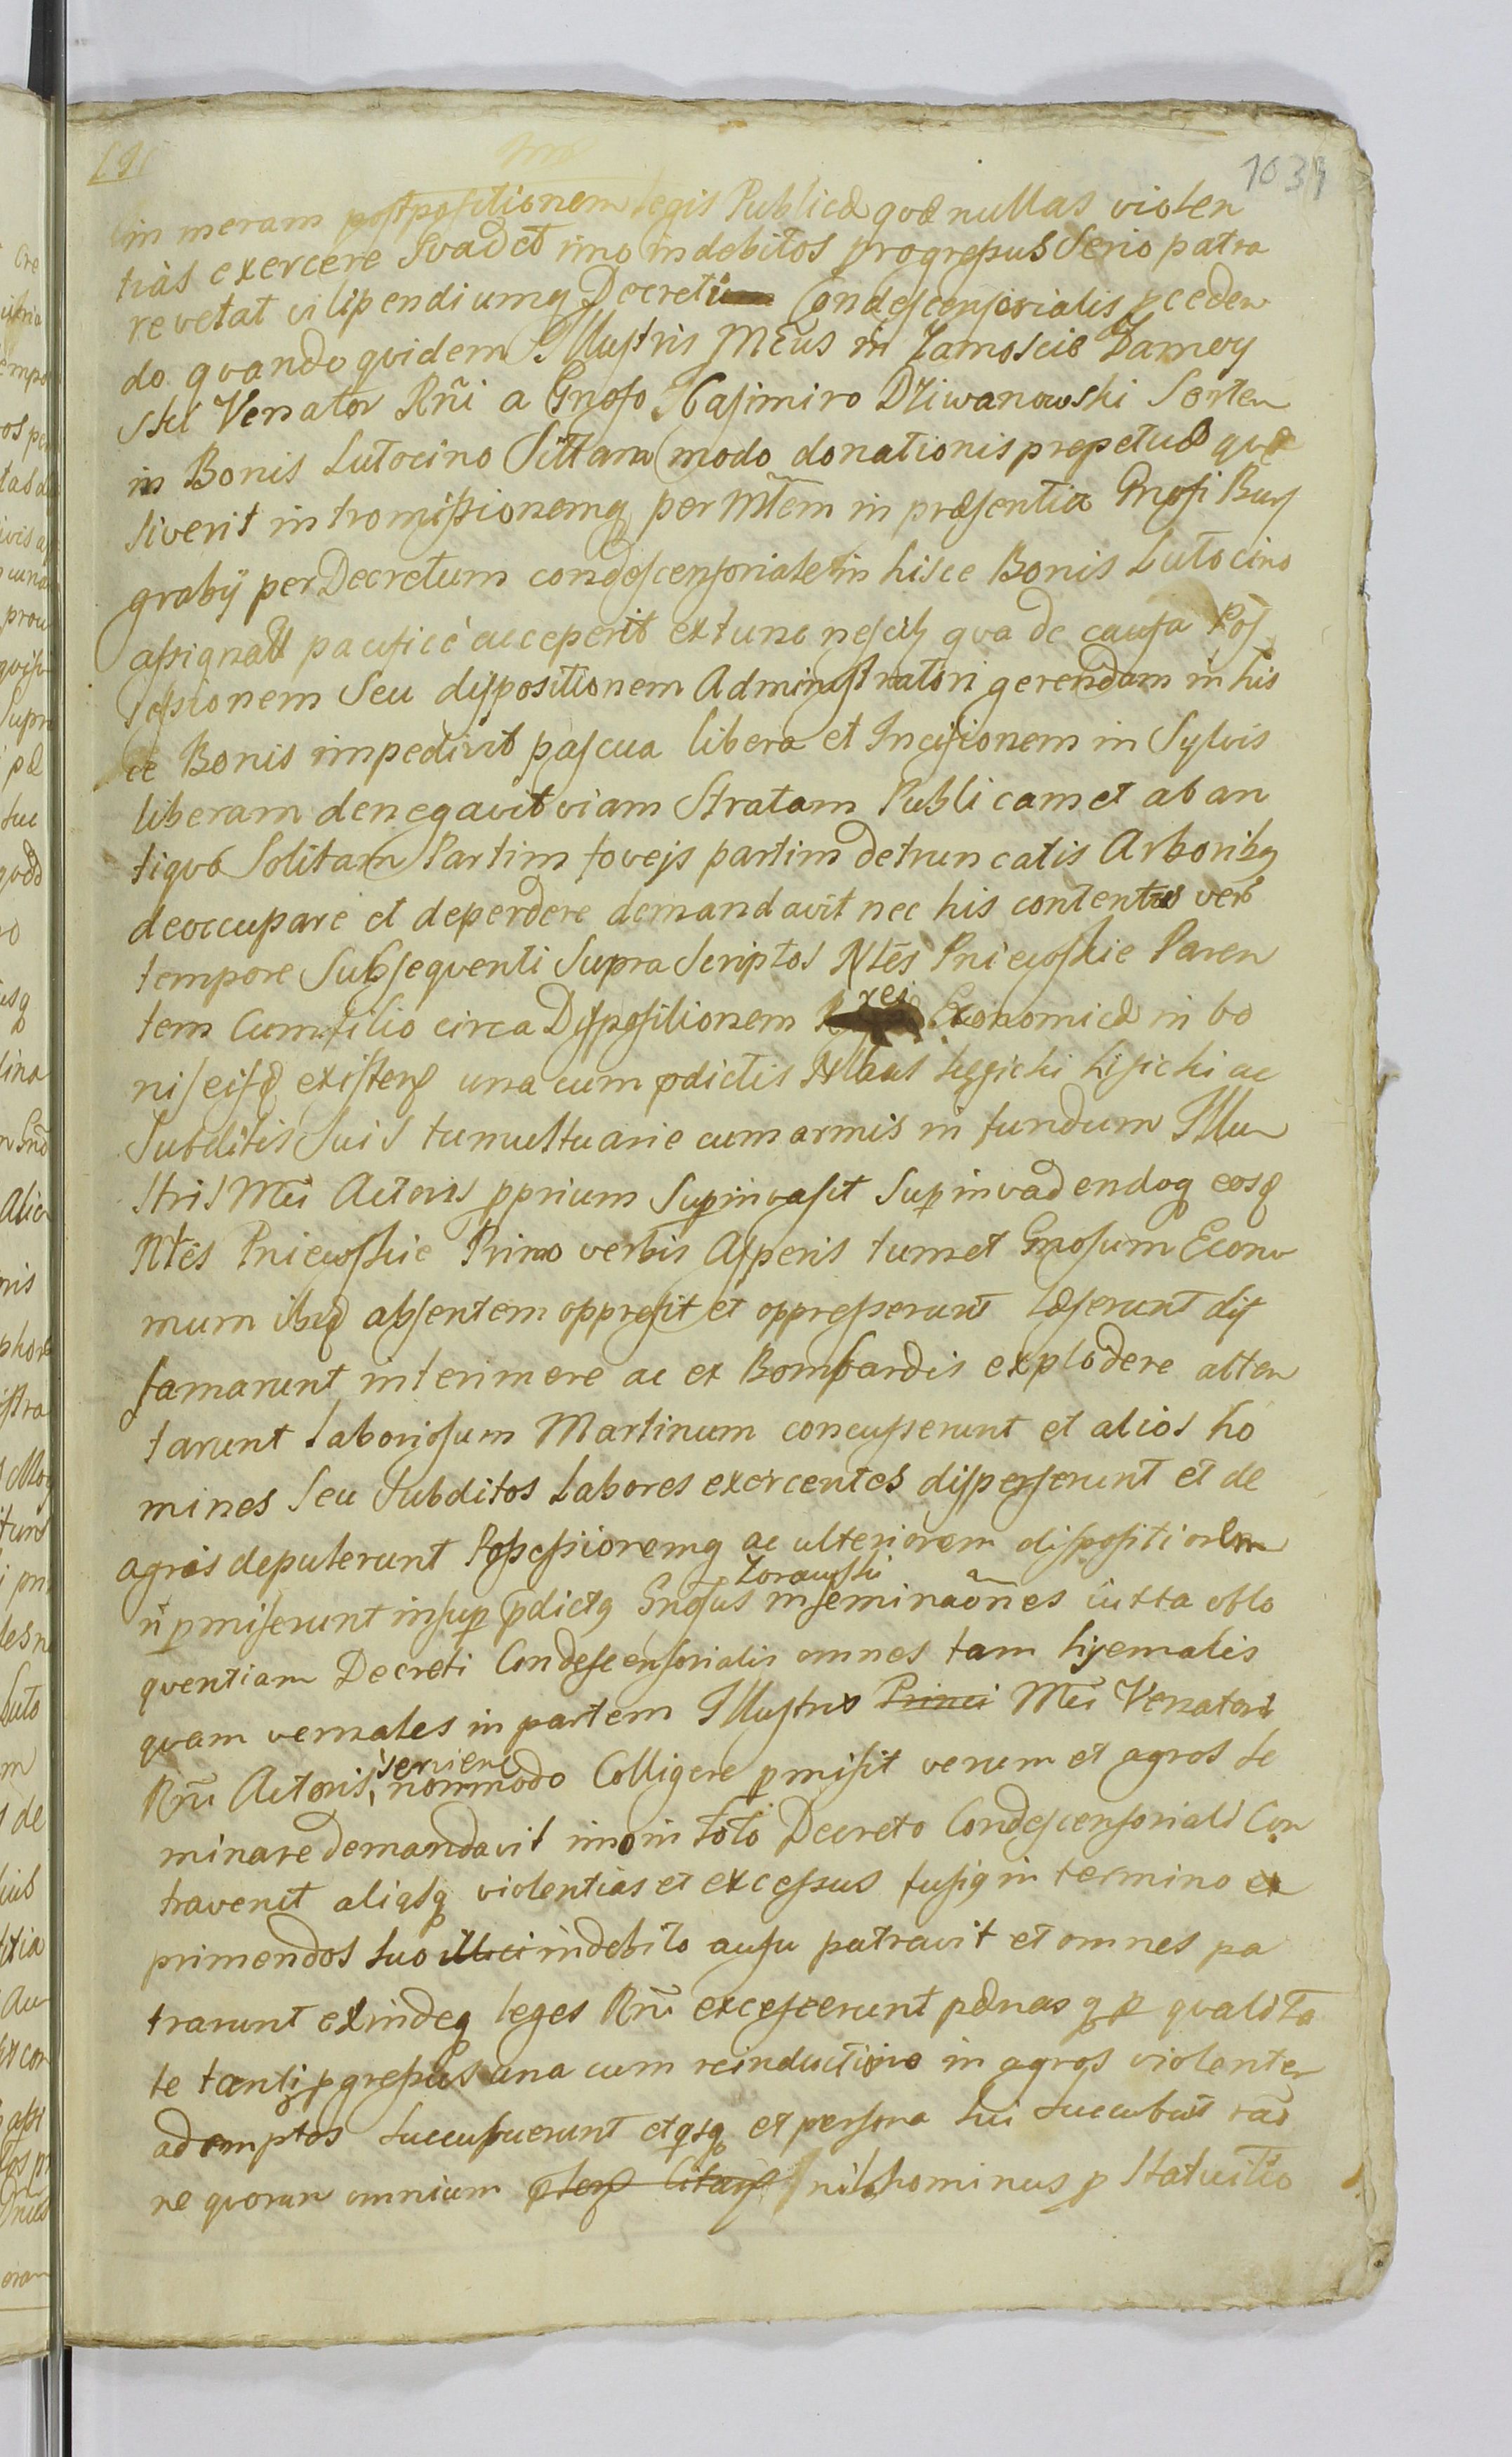 1039
in meram postpositionem legis Publicæ qvæ nullas violen
tias exercere Svadet imo indebitos progressus Serio patra
re vetat vilipendiumq Decreti Condescensorialis pceden
do qvando qvidem Illustris Mcus in Zamoscie Zamoy
ski Venator Rñi a Gnoso Kasimiro Dziwanowski Sortem
in Bonis Lutocino Sittam modo donationis perpetuæ qvæ
siverit intromissionemq per Mtem in præsentia Gnosi Bur
grabij per Decretum condescensoriale in hisce Bonis Lutocino
assignati pacifice acceperit extunc nescitz qva de causa Pos
sessionem Seu dispositionem Administratori gerendam in his
ce Bonis impedivit pascua libera et Incisionem in Sylvis
liberam denegavit viam Stratam Publicam et ab an
tiqvo Solitam Partim foveis partim detruncatis Arboribq
deoccupare et deperdere demandavit nec his contentus vero
tempore Subseqventi Supra Scriptos Ntes Pniewskie Paren
tem Cum filio circa Dispositionem rei Economicæ in bo
nis eisd existen una cum pdictis Nlbus Lisicki ac
Subditis Suis tumultuarie cum armis in fundum Illu
stris Mci Actoris pprium Supinvasit Supinvadendoq eosd
Ntes Pniewskie Primo verbis Asperis tum et Gnosum Econo
mum ibid absentem oppressit et oppresserunt læserunt dif
famarunt interimere ac ex Bombardis explodere atten
tarunt Laboriosum Martinum concusserunt et alios ho
mines Seu Subditos Labores exercentes disperserunt et de
agris depulerunt Possessionemq ac ulteriorem dispositionem
ñ pmiserunt insup pdictq Gnosus Zorawski inseminaões iuxta oblo
qventiam Decreti Condescensorialis omnes tam hyemales
qvam vernales in partem Illustris Princi Mci Venatoris
Rñi Actoris servien non modo Colligere pmisit verum et agros se
minare demandavit imo in toto Decreto Condescensoriali Con
travenit aliasq violentias et excessus fusiq in termino ex
primendos suo illici indebito ausu patravit et omnes pa
trarunt exindeq leges Rñi excesserunt pænas q p qvalita
te tanti pgressus una cum reinductione in agros violenter
ademptos succubuerunt et qsq et persona sui succubuit rao
ne qvorum omnium nihilominus p Statuitio